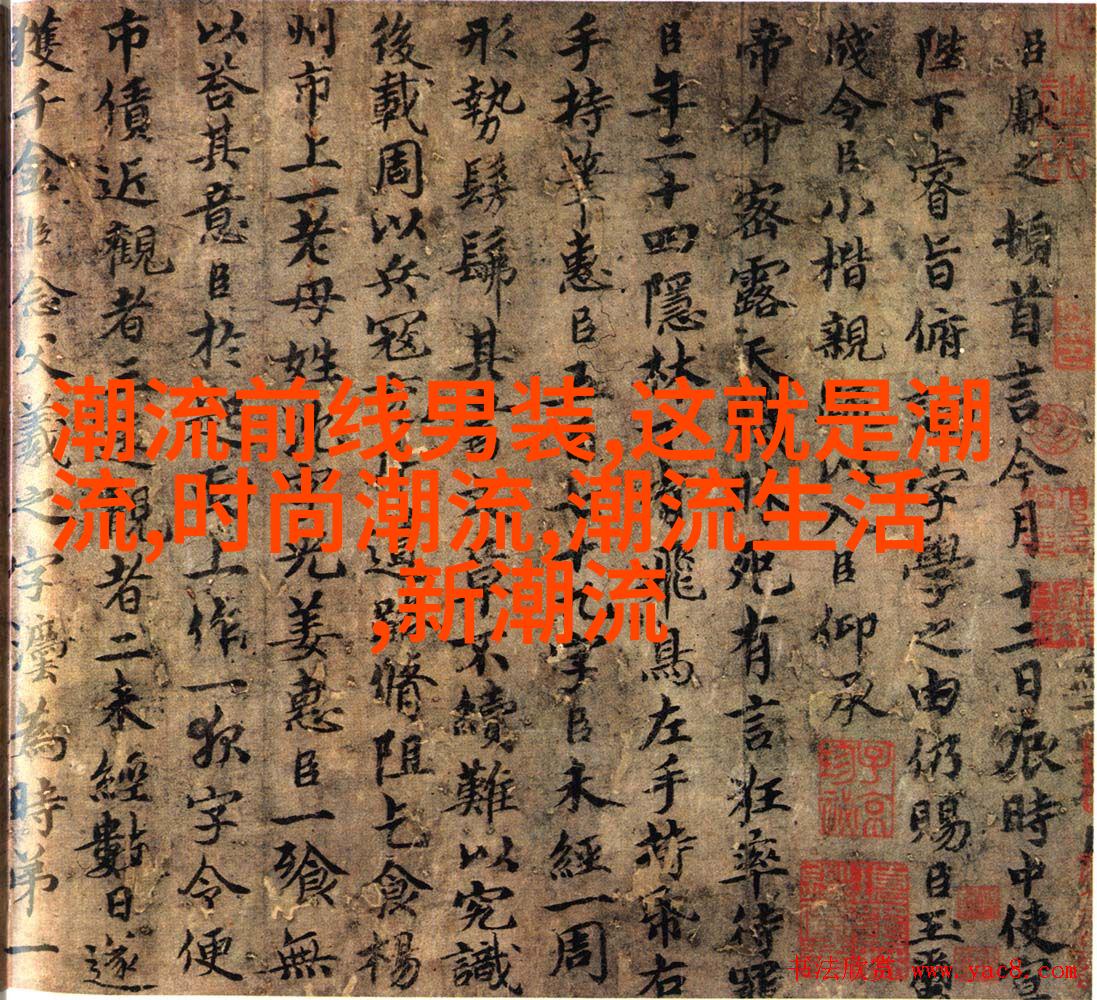 潮流前线男装,这就是潮
流,时尚潮流,潮流生活
,新潮流
臣獻之頓首言今月十三日辰時中使宣
陛下睿旨俯字學之由仍賜臣玉
臣小楷親以入臣仰承
帝命密露天死有言言狂率待罪
臣年二十四隱林飛鳥左手持帋右
手持筆惠臣五字臣未經一周
形勢髣髴其不續難以究識
後載周以兵寇道脩阻乞食楊
州市上一老母姓光姜惠臣一飱無
以荅其意臣於上作一夜字令便
市債近觀者三遠觀者二未經數日遂
獲千金臣念父羲之字法為時第一
书法欣赏 www.yac8.com